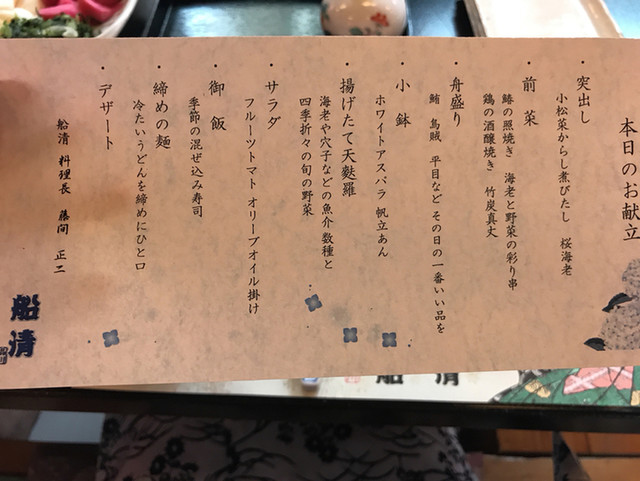 本日のお献立
・突出し
小松菜からし煮びたし 桜海老
・前菜
鰆の照焼き 海老と野菜の彩り串
鶏の酒醸焼き 竹炭真丈
・舟盛り
鮪 烏賊 平目など その日の一番いい品を
・小鉢
ホワイトアスパラ 帆立あん
・揚げたて天麩羅
海老や穴子などの魚介数種と
四季折々の旬の野菜
・サラダ
フルーツトマト オリーブオイル掛け
・御飯
季節の混ぜ込み寿司
・締めの麺
冷たいうどんを締めにひと口
・デザート
船清 料理長 藤間 正二
船清
船清